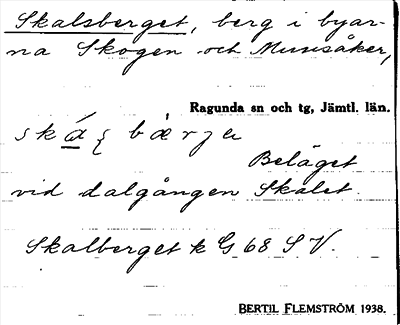 Skalsberget, berg i byar-
na Skogen och Munsåker,
Ragunda sn och tg, Jämtl. län.
Beläget
vid dalgången Skalet.
Skalberget k G 68 S V.
BERTIL FLEMSTRÖM 1938.